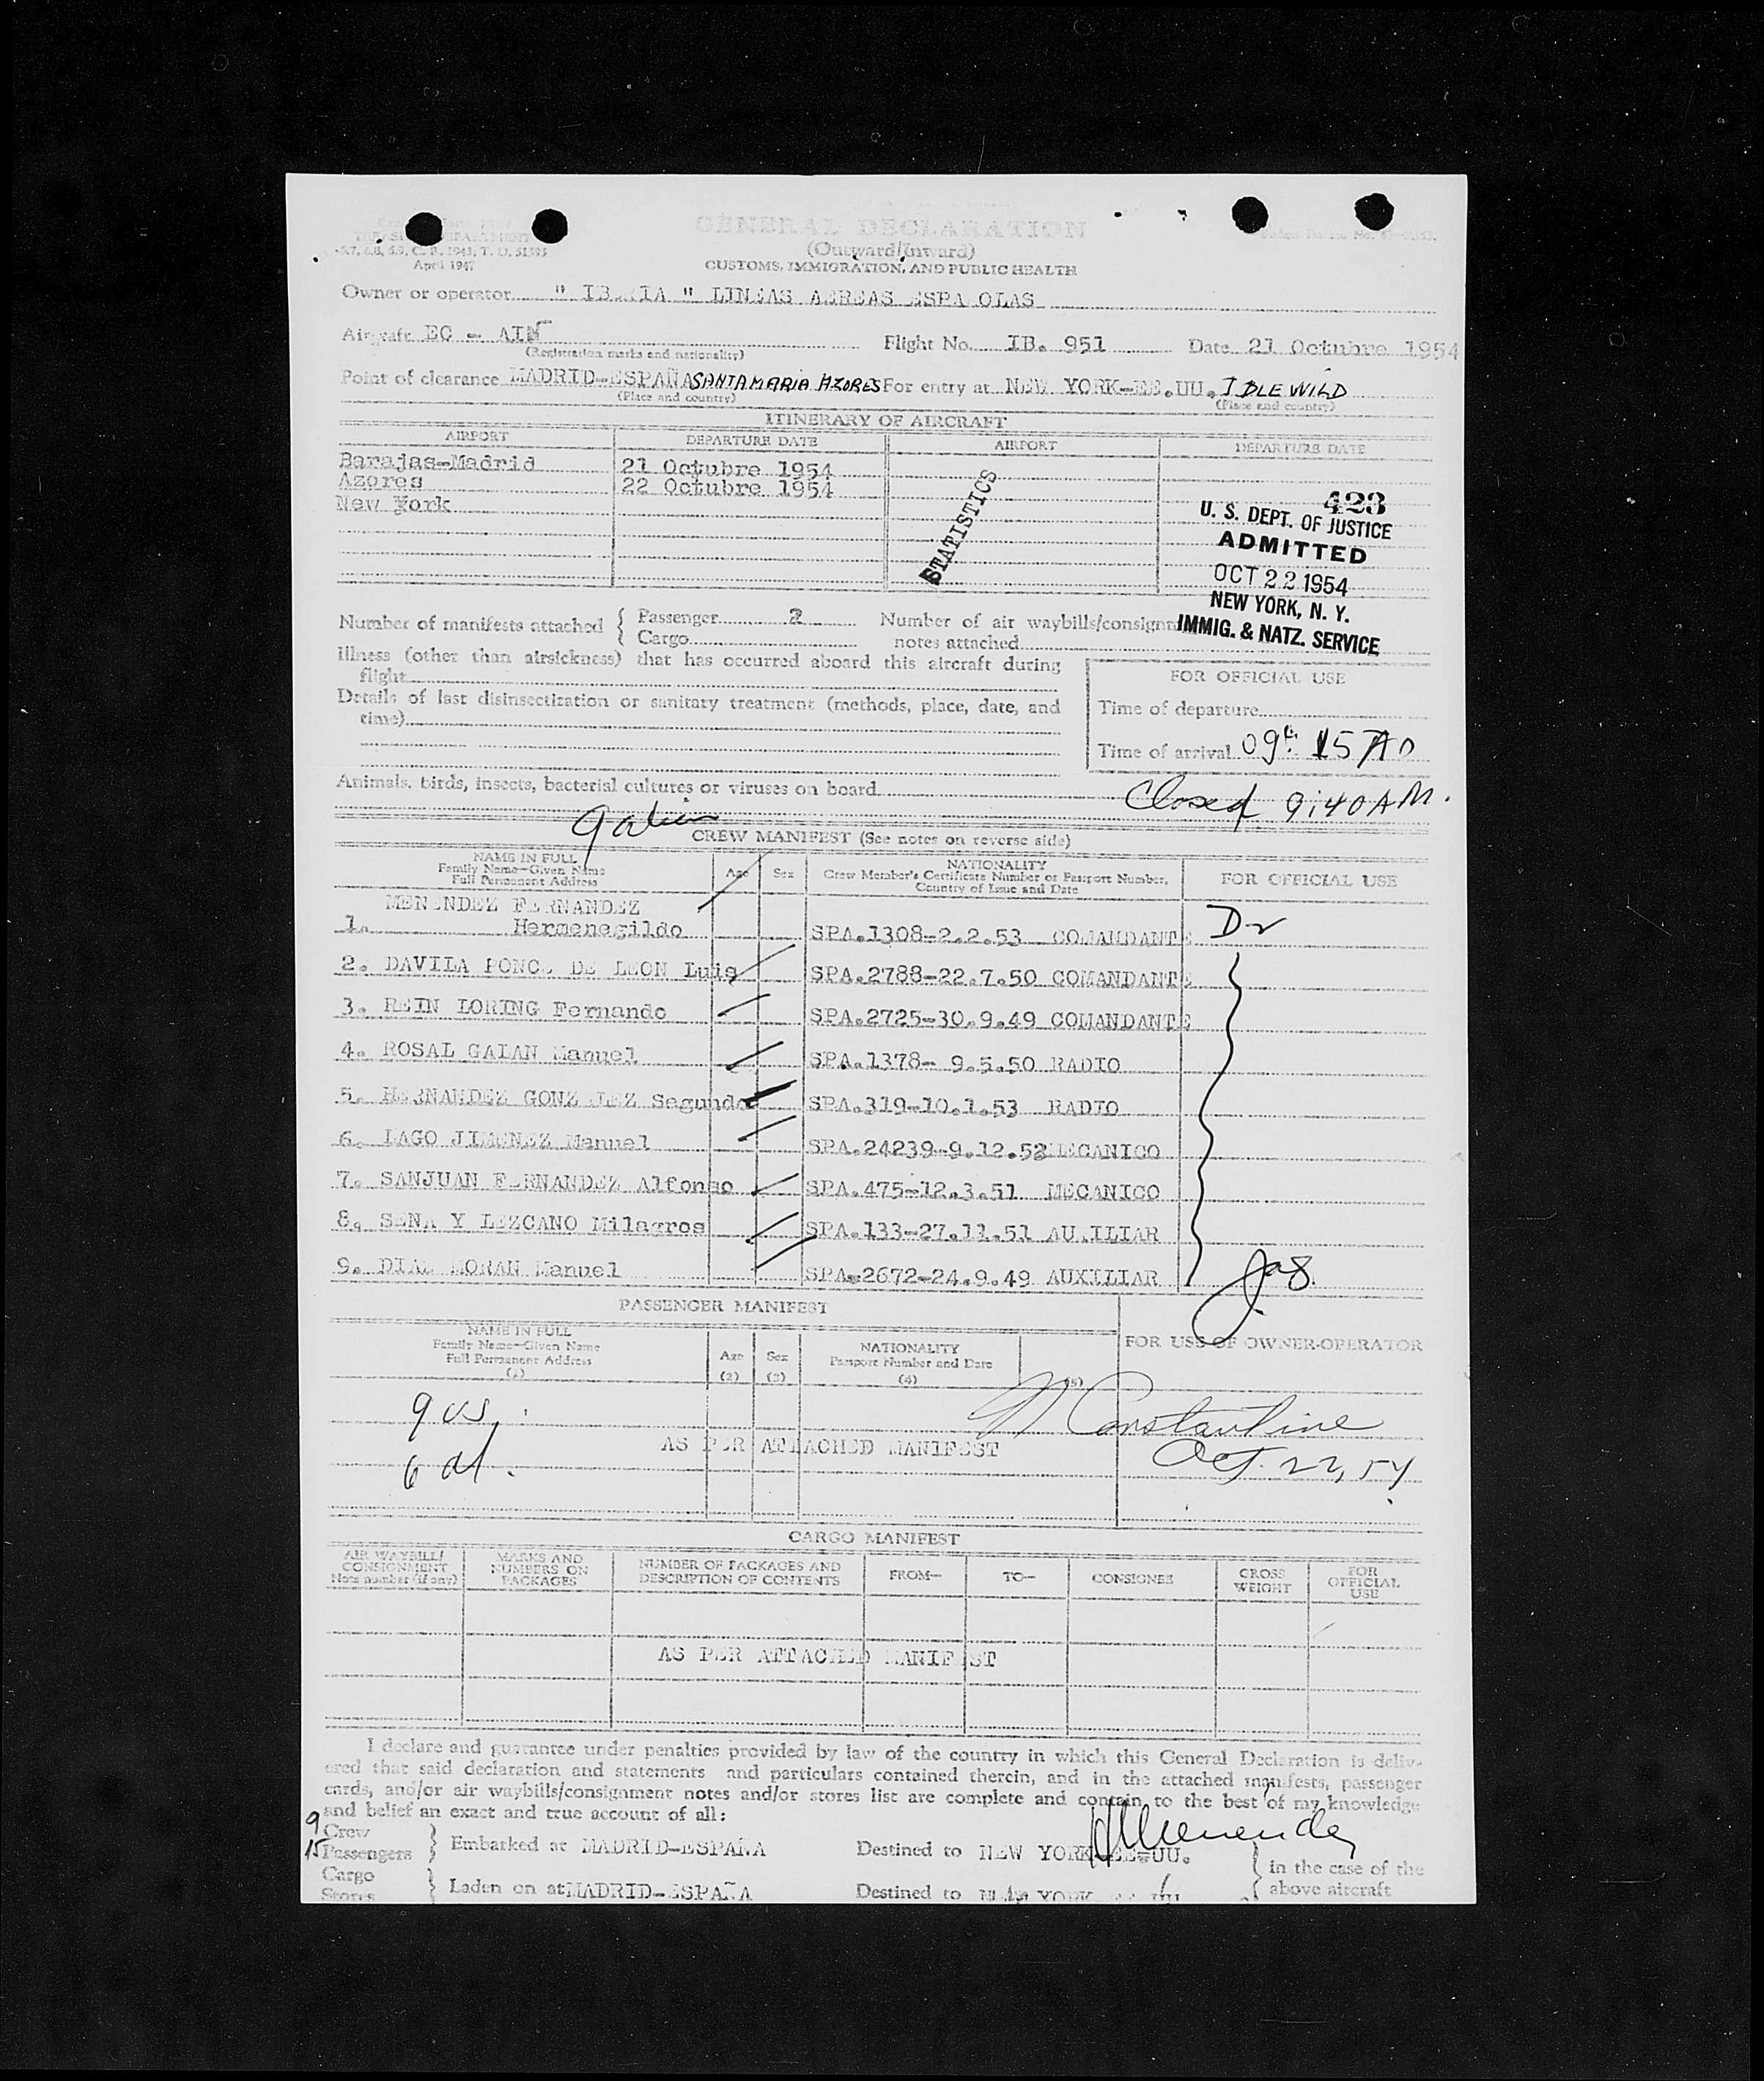 GENERAL DECLARATION
(Outward/Inward)
CUSTOMS, IMMIGRATION, AND PUBLIC HEALTH
April 1947
Owner or operator " IBERIA " LINEAS AEREAS ESPA OLAS
Aircraft EC - AIN
(Registration marks and nationality)
Flight No. IB. 951
Date 21 Octubre 1954
Point of clearance MADRID-ESPAÑA SANTA MARIA AZORES For entry at NEW YORK-EE.UU. IDLEWILD
(Place and country)
(Place and country)
ITINERARY OF AIRCRAFT
AIRPORT DEPARTURE DATE AIRPORT DEPARTURE DATE
Barajas-Madrid 21 Octubre 1954
Azores 22 Octubre 1954
New York
STATISTICS
423
U. S. DEPT. OF JUSTICE
ADMITTED
OCT 22 1954
NEW YORK, N. Y.
IMMIG. & NATZ. SERVICE
Number of manifests attached { Passenger 2
Cargo
Number of air waybills/consignm
notes attached
Illness (other than airsickness) that has occurred aboard this aircraft during
flight
Details of last disinsectization or sanitary treatment (methods, place, date, and
time)
FOR OFFICIAL USE
Time of departure
Time of arrival 09h 15
Animals, birds, insects, bacterial cultures or viruses on board
Closed 9:40 AM.
9 alien
CREW MANIFEST (See notes on reverse side)
NAME IN FULL
Family Name—Given Name
Full Permanent Address
Age Sex
NATIONALITY
Crew Member's Certificate Number or Passport Number,
Country of Issue and Date
FOR OFFICIAL USE
MENENDEZ FERNANDEZ
1. Hermenegildo SPA.1308-2.2.53 COMANDANTE
2. DAVILA PONCE DE LEON Luis SPA.2788-22.7.50 COMANDANTE
3. REIN LORING Fernando SPA.2725-30.9.49 COMANDANTE
4. ROSAL GALAN Manuel SPA.1378- 9.5.50 RADIO
5. HERNANDEZ GONZALEZ Segundo SPA.319-10.1.53 RADIO
6. LAGO JIMENEZ Manuel SPA.24239-9.12.52 MECANICO
7. SANJUAN FERNANDEZ Alfonso SPA.475-12.3.51 MECANICO
8. SENA Y LEZCANO Milagros SPA.133-27.11.51 AUXILIAR
9. DIAZ MORAN Manuel SPA.2672-24.9.49 AUXILIAR
PASSENGER MANIFEST
NAME IN FULL
Family Name—Given Name
Full Permanent Address
(1)
Age
(2)
Sex
(3)
NATIONALITY
Passport Number and Date
(4)
(5)
FOR USE OF OWNER-OPERATOR
9 US
6 al.
AS PER ATTACHED MANIFEST
Constantine
Oct. 22, 54
CARGO MANIFEST
AIR WAYBILL/
CONSIGNMENT
Note number (if any)
MARKS AND
NUMBERS ON
PACKAGES
NUMBER OF PACKAGES AND
DESCRIPTION OF CONTENTS
FROM— TO— CONSIGNEE
GROSS
WEIGHT
FOR
OFFICIAL
USE
AS PER ATTACHED MANIFEST
I declare and guarantee under penalties provided by law of the country in which this General Declaration is deliv-
ered that said declaration and statements and particulars contained therein, and in the attached manifests, passenger
cards, and/or air waybills/consignment notes and/or stores list are complete and contain to the best of my knowledge
and belief an exact and true account of all:
9 Crew
15 Passengers } Embarked at MADRID-ESPAÑA Destined to NEW YORK EE-UU.
Cargo
Stores } Laden on at MADRID-ESPAÑA Destined to NEW YORK EE UU
{ in the case of the
above aircraft
HMenendez